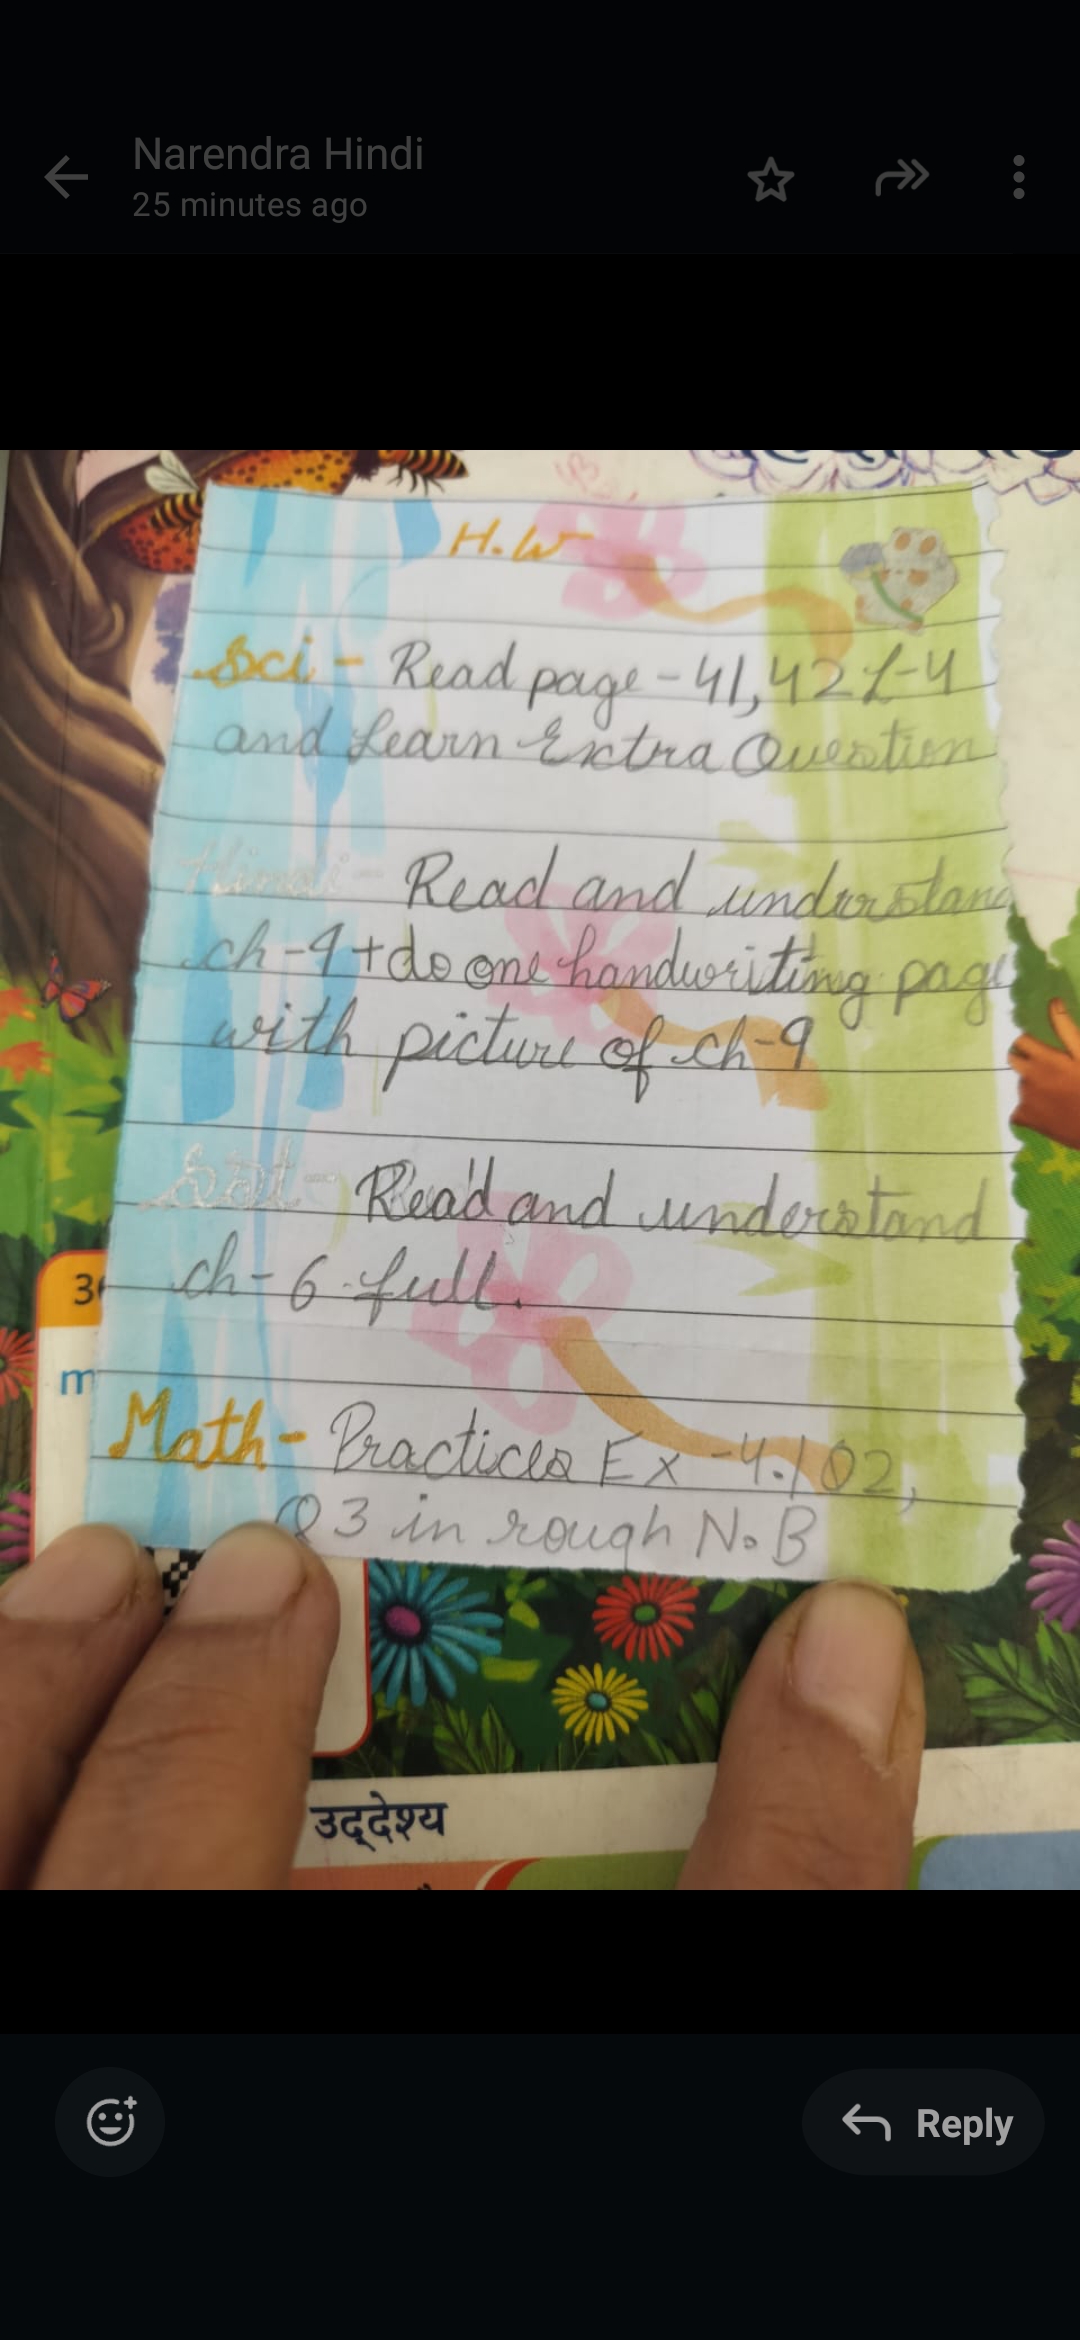 Narendra Hindi
25 minutes ago
H.W
Sci - Read page - 41, 42 L-4
and Learn Extra Question
Hindi - Read and understand
ch-9 + do one handwriting page
with picture of ch-9
SSt - Read and understand
ch-6 full.
Math - Practices Ex -4.1 Q2,
Q3 in rough N.B
3
m
उद्देश्य
Reply